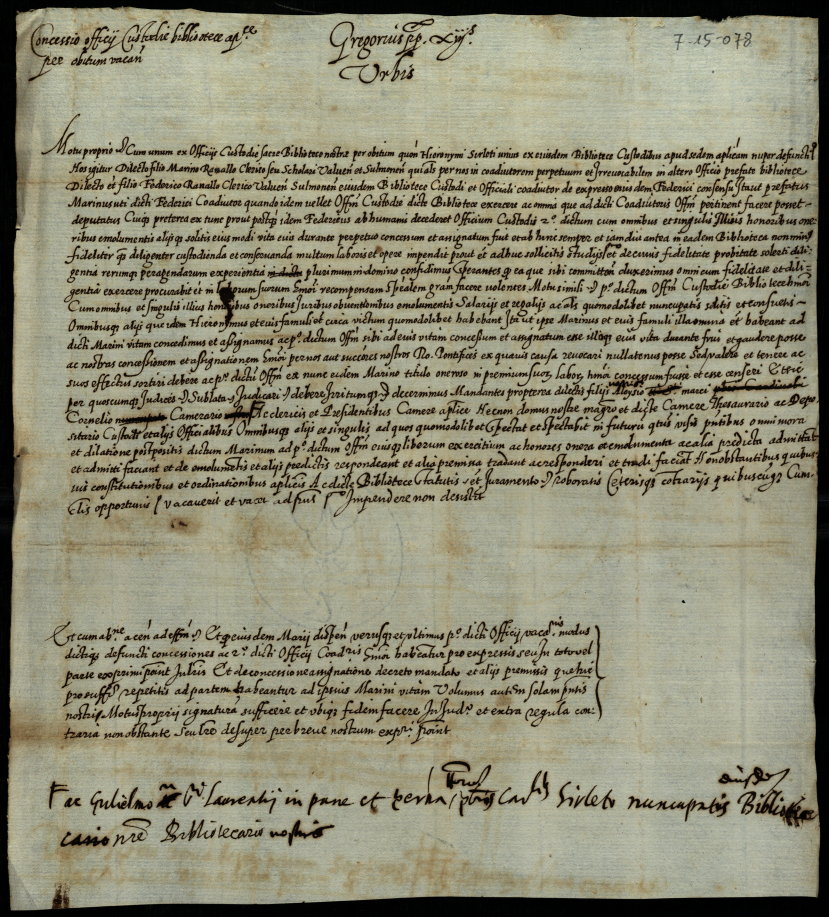 Concessio officij Custodie bibliotece ap.ce
per obitum vacan
Gregorius pp. xiijs.
Urbis
7-15-078
Motu proprio Cum unum ex Officijs Custodie sacre Bibliotece nostre per obitum quon Hieronymi Sirleti unius ex eiusdem Bibliotece Custodibus apud sedem aplicam nuper defuncti
Hos igitur Dilecto filio Marino Ranallo Clerico seu Scholari Valuen et Sulmonen qui als per nos in coadiutorem perpetuum et Irrevocabilem in altero Officio prefate bibliotece
Dilecto et filio Federico Ranallo Clerico Valuen Sulmonen eiusdem Bibliotece Custodi et Officiali coadiutor de expresso eiusdem Federici consensu Itaut prefatus
Marinus uti dicti Federici Coadiutor quando idem vellet Offm Custodie dicte Bibliotece exercere ac omnia que ad dicti Coadiutoris Offm pertinent facere posset
deputatus Cuiq preterea ex tunc prout postq idem Federicus ab humanis decederet Officium Custodis 2.o dictum cum omnibus et singulis illius honoribus one-
ribus emolumentis alijsq solitis eius modi vita eius durante perpetuo concessum et assignatum fuit et ab hinc semper et iam diu antea in eadem Bibliotheca non minus
fideliter q diligenter custodienda et conservanda multum laboris et opere impendit prout et adhuc sollicitis studijs et de cuius fidelitate probitate solerti dili-
gentia rerumq peragendarum experientia plurimum in domino confidimus Sperantes q ea que sibi committen duxerimus omni cum fidelitate et dili-
gentia exercere procurabit et in laborum suorum recompensam specialem gram facere volentes Motu simili pº dictum Offm Custodie Bibliotece hmoi
Cum omnibus et singulis illius honoribus oneribus Iuribus obventionibus emolumentis Salarijs et regalijs ac als quomodolibet nuncupatis solitis et consuetis
Omnibusq alijs que idem Hieronymus et eius famuli et circa victum quomodolibet habebant Ita ut ipse Marinus et eius famuli illa omnia et habeant ad
dicti Marini vitam concedimus et assignamus ac pº dictum Offm sibi ad eius vitam concessum et assignatum esse illoq eius vita durante frui et gaudere posse
ac nostras concessionem et assignationem hmoi per nos aut succores nostros Ro. Pontifices ex quavis causa revocari nullatenus posse Sed valere et tenere ac
suos effectus sortiri debere ac pº dictu Offm ex nunc eidem Marino titulo oneroso in premium suor labor hmoi concessum fuisse et esse censeri Et sic
per quoscumq Judices Sublata Judicari debere Irritumq decernimus Mandantes propterea dilectis filijs Aloysio marci
Cornelio Camerario ac clericis et Presidentibus Camere aplice Necnon domus nostre magro et dicte Camere Thesaurario ac Depo-
sitario Custodi et alijs Officialibus Omnibusq alijs et singulis ad quos quomodolibet spectat et spectabit in futuru qtus visis pntibus omni mora
et dilatione postpositis dictum Marinum ad pº dictum Offm eiusq liberorum exercitium ac honores onera et emolumenta ac alia predicta admittat
et admitti faciant et de emolumetis et alijs predictis respondeant et alia premissa tradant ac responderi et tradi faciat Non obstantibus quibus-
uis constitutionibus et ordinationibus aplicis Ac dicte Bibliotece statutis et Juramento roboratis Ceterisq cotrarijs quibuscuq Cum
clis opportunis / vacaverit et vacet ad pns / Impendere non desistit
Et cum abne a cen ad effm Et q eiusdem Marij dispen verusq et ultimus pº dicti Officij vacanis modus
dictiq defuncti concessiones ac 2º dicti Officij Coadris hmoi habeatur pro expressis seu in toto vel
parte exprimi point Jnlris Et de concessione assignatione decreto mandato et alijs premissis que hic
pro suffis repetitis ad partem habeantur ad ipsius Marini vitam Volumus autem solam pntis
nostri Motus proprij signatura sufficere et ubiq fidem facere In Judº et extra regula con-
traria non obstante Seu lre desuper per breve nostrum expri point
Fac Gulielmo Sti Laurentij in pane et perna pbro Carlis Sirleto nuncupatis Bibliothe
cario nre Bibliotecario nostris